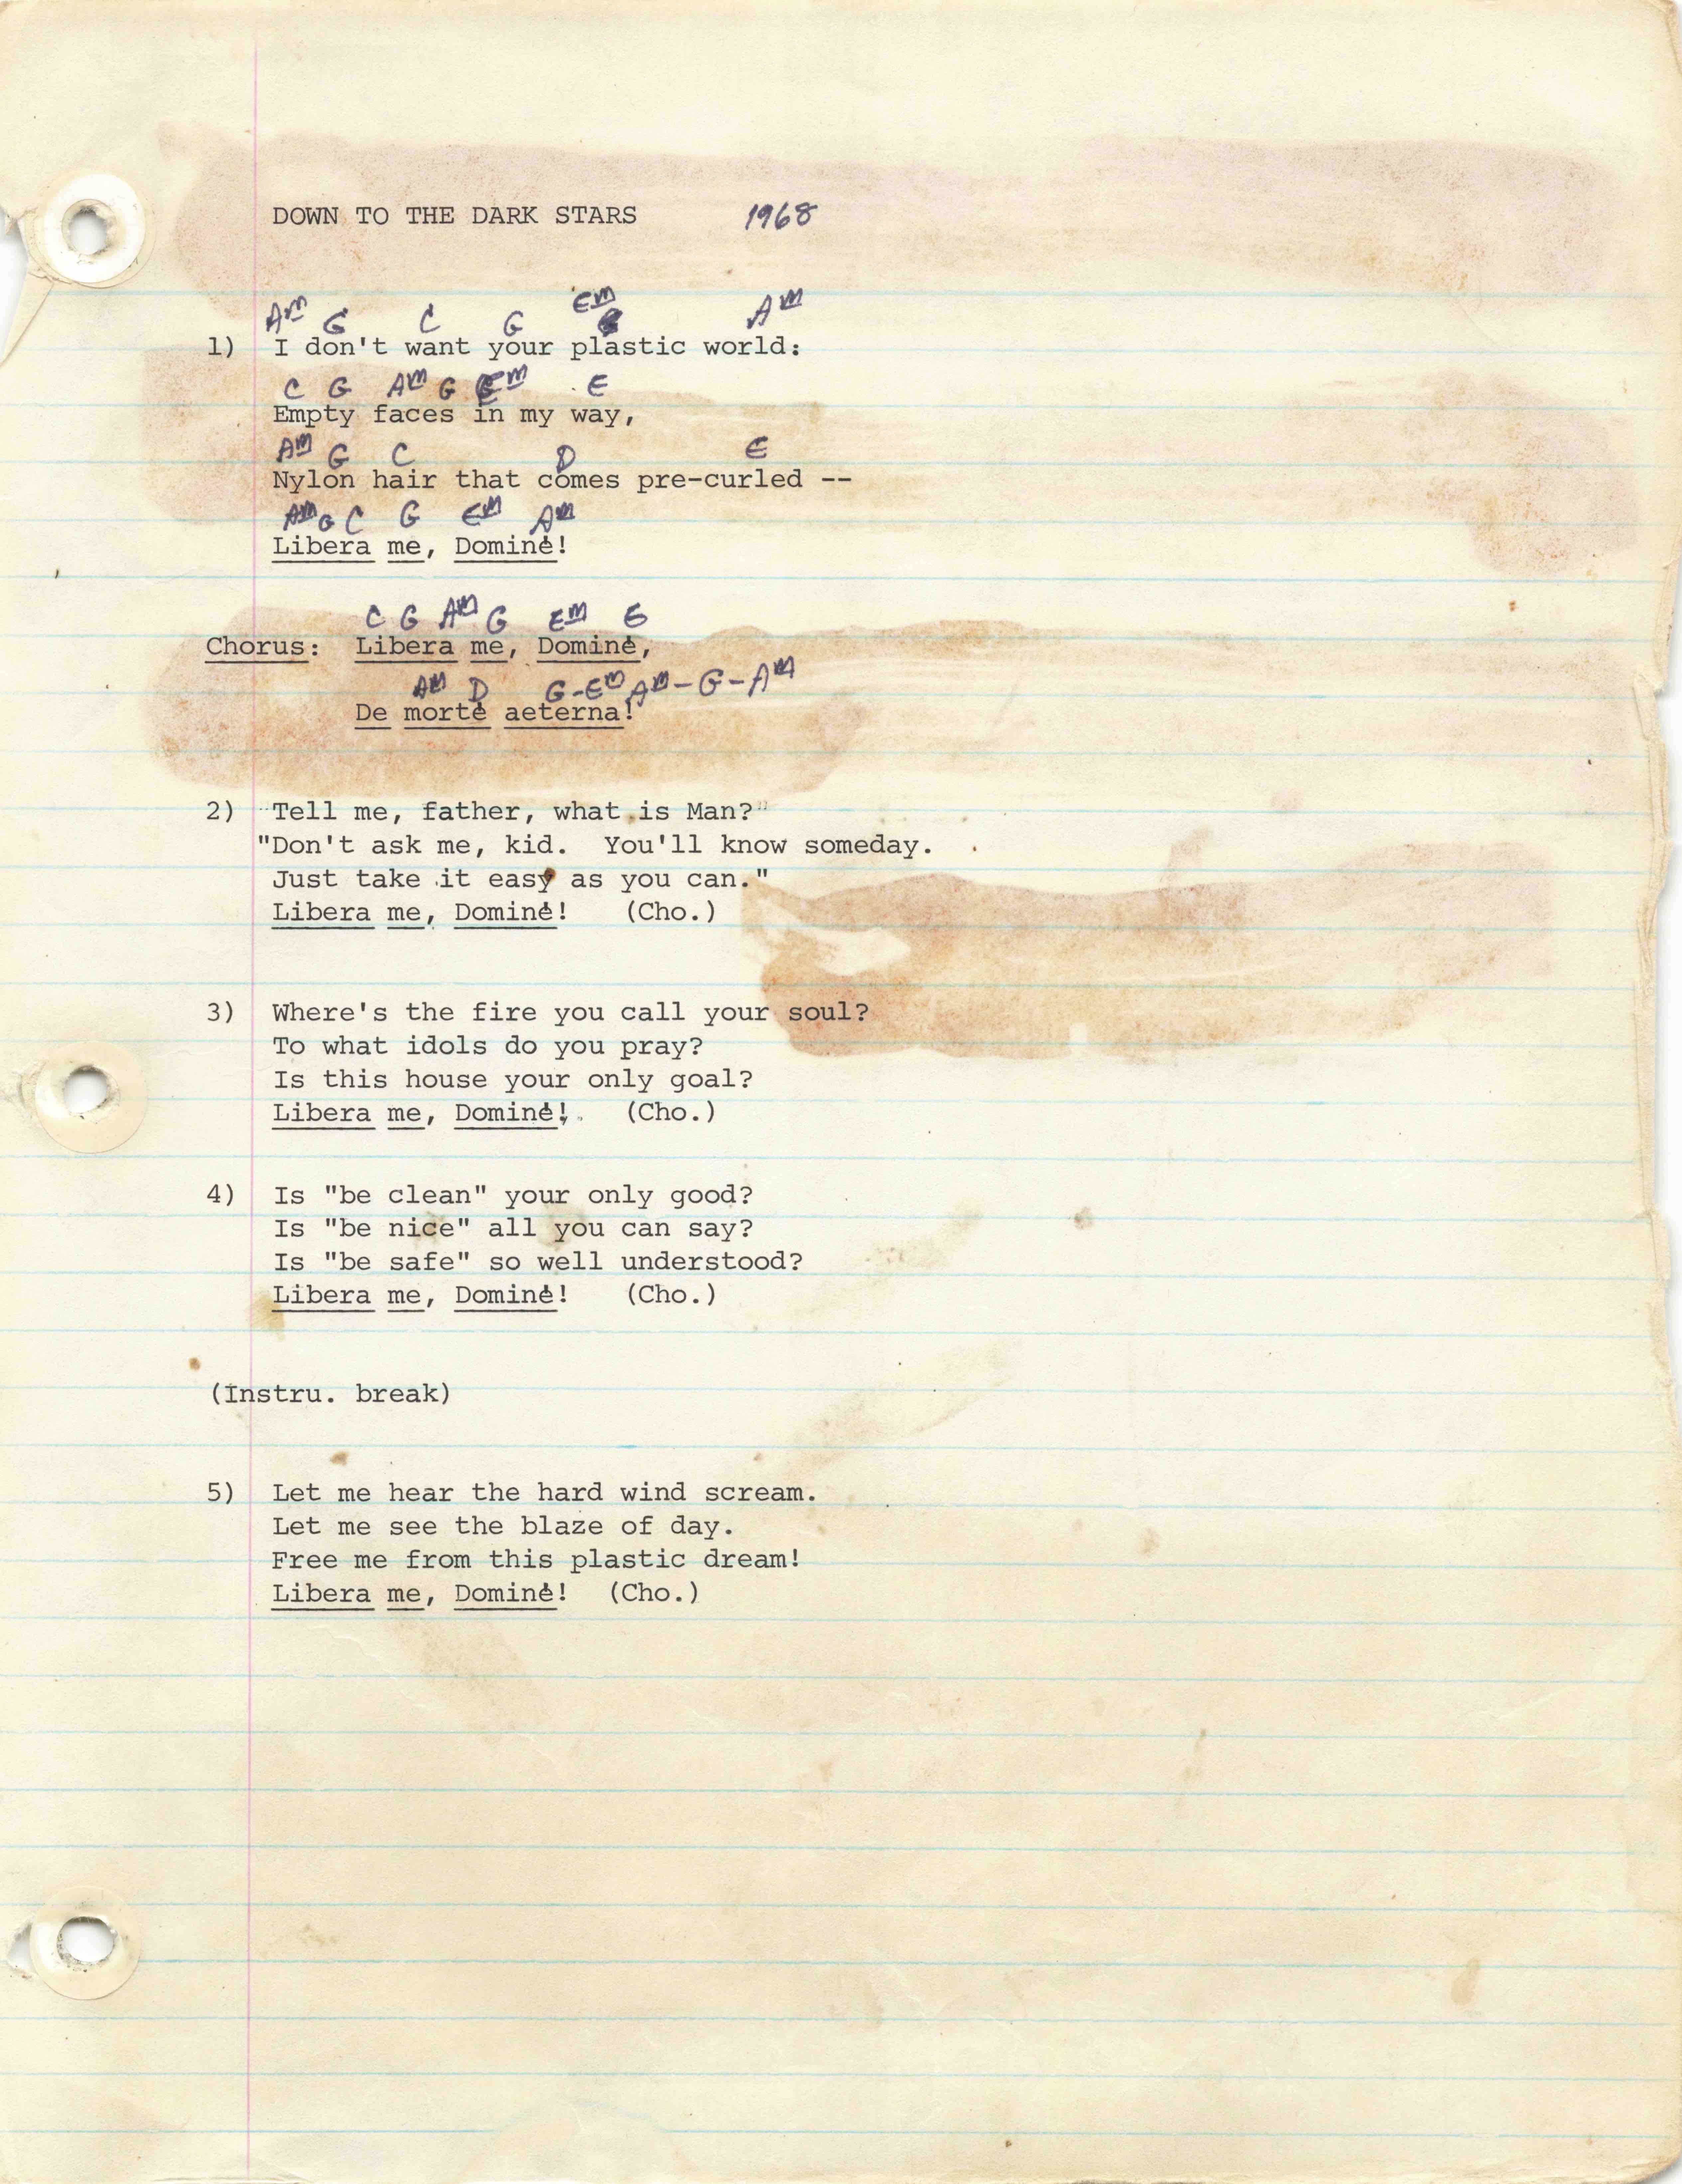 DOWN TO THE DARK STARS 1968
Am G C G Em Am
1) I don't want your plastic world:
C G Am G Em E
Empty faces in my way,
Am G C D E
Nylon hair that comes pre-curled --
Am G C G Em Am
Libera me, Dominé!
C G Am G Em E
Chorus: Libera me, Dominé,
Am D G-Em Am-G-Am
De morté aeterna!
2) "Tell me, father, what is Man?"
"Don't ask me, kid. You'll know someday.
Just take it easy as you can."
Libera me, Dominé! (Cho.)
3) Where's the fire you call your soul?
To what idols do you pray?
Is this house your only goal?
Libera me, Dominé! (Cho.)
4) Is "be clean" your only good?
Is "be nice" all you can say?
Is "be safe" so well understood?
Libera me, Dominé! (Cho.)
(Instru. break)
5) Let me hear the hard wind scream.
Let me see the blaze of day.
Free me from this plastic dream!
Libera me, Dominé! (Cho.)